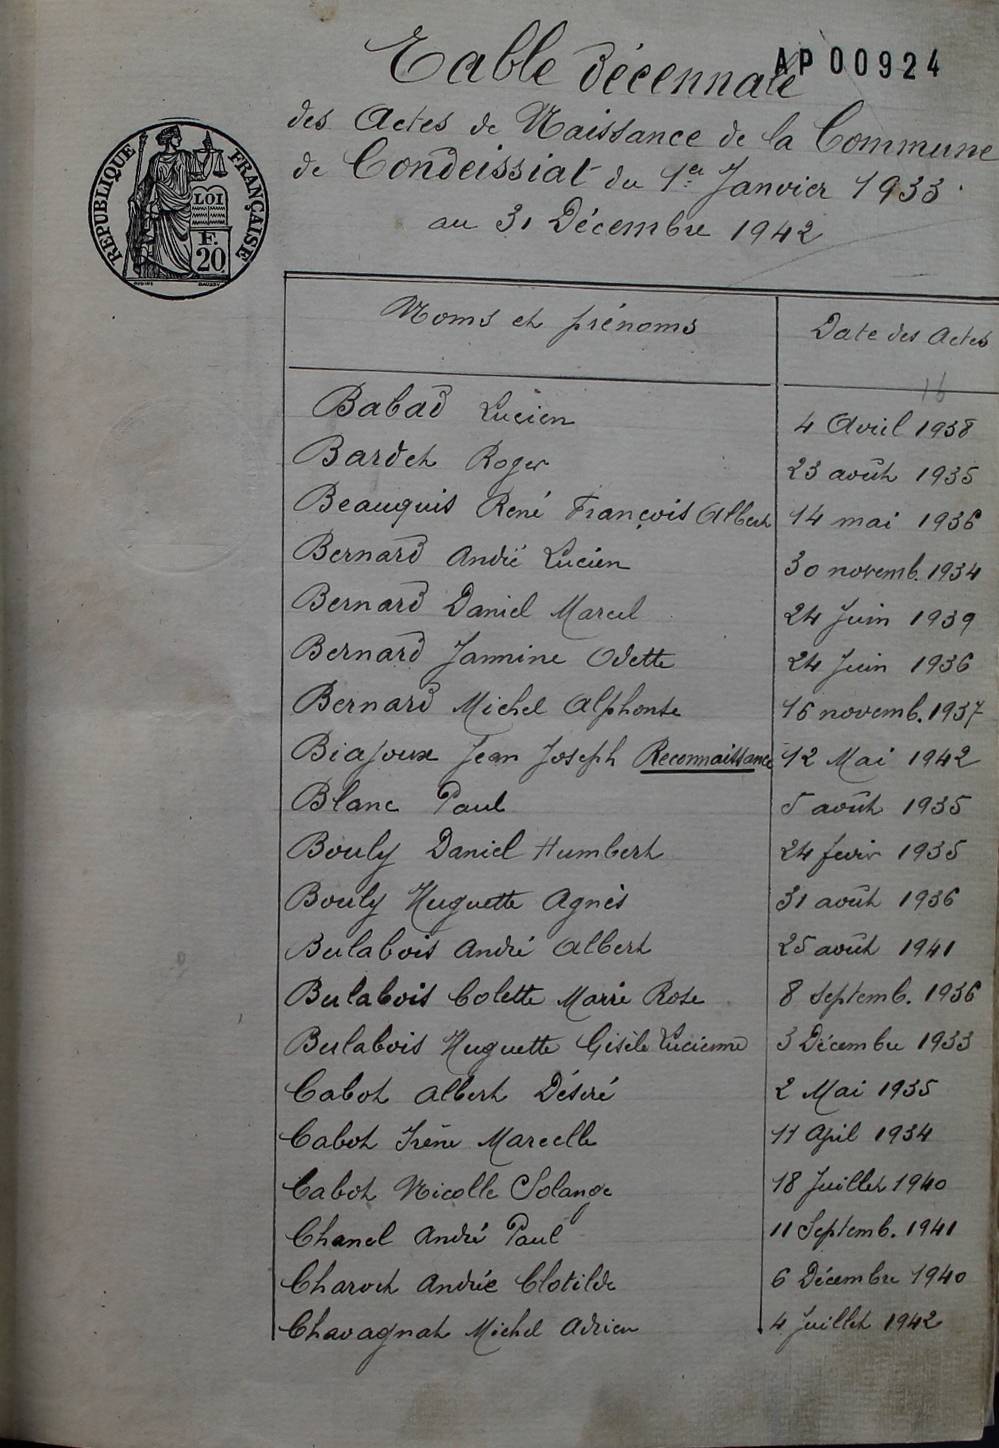 Table décennale
AP 00924
des Actes de Naissance de la Commune
de Condeissiat du 1er Janvier 1933
au 31 Décembre 1942
RÉPUBLIQUE FRANÇAISE
LOI
F.
20
Noms et prénoms Date des Actes
16
Babad Lucien 4 Avril 1938
Bardet Roger 23 août 1935
Beauquis René François Albert 14 mai 1936
Bernard André Lucien 30 novemb. 1934
Bernard Daniel Marcel 24 Juin 1939
Bernard Jannine Odette 24 Juin 1936
Bernard Michel Alphonse 16 novemb. 1937
Biajoux Jean Joseph Reconnaissance 12 Mai 1942
Blanc Paul 5 août 1935
Bouly Daniel Humbert 24 févir 1935
Bouly Huguette Agnès 31 août 1936
Bulabois André Albert 25 août 1941
Bulabois Colette Marie Rose 8 Septemb. 1936
Bulabois Huguette Gisèle Lucienne 3 Décembre 1933
Cabot Albert Désiré 2 Mai 1935
Cabot Irène Marcelle 11 April 1934
Cabot Nicolle Solange 18 Juillet 1940
Chanel André Paul 11 Septemb. 1941
Charvet Andrée Clotilde 6 Décembre 1940
Chavagnat Michel Adrien 4 Juillet 1942